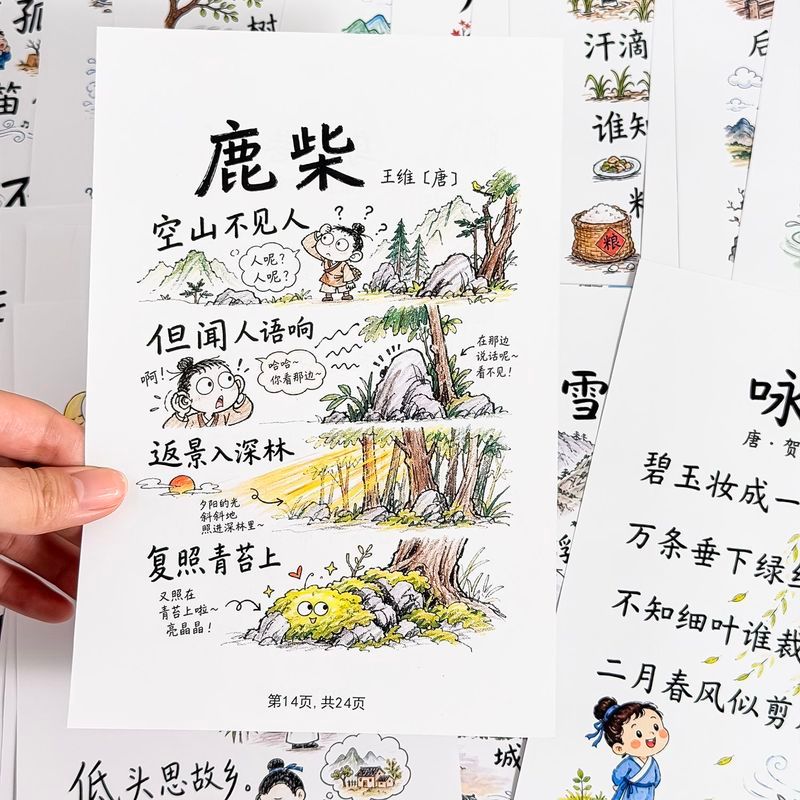 鹿柴
王维〔唐〕
空山不见人
? ? ?
人呢?
人呢?
但闻人语响
啊!
!
哈哈~
你看那边~
在那边
说话呢~
看不见!
返景入深林
夕阳的光
斜斜地
照进深林里~
复照青苔上
又照在
青苔上啦~
亮晶晶!
第14页, 共24页
孤
树
笛
不
汗滴
谁知
粮
后
雪
咏
唐·贺
碧玉妆成一
万条垂下绿
不知细叶谁裁
二月春风似剪
低头思故乡。
城